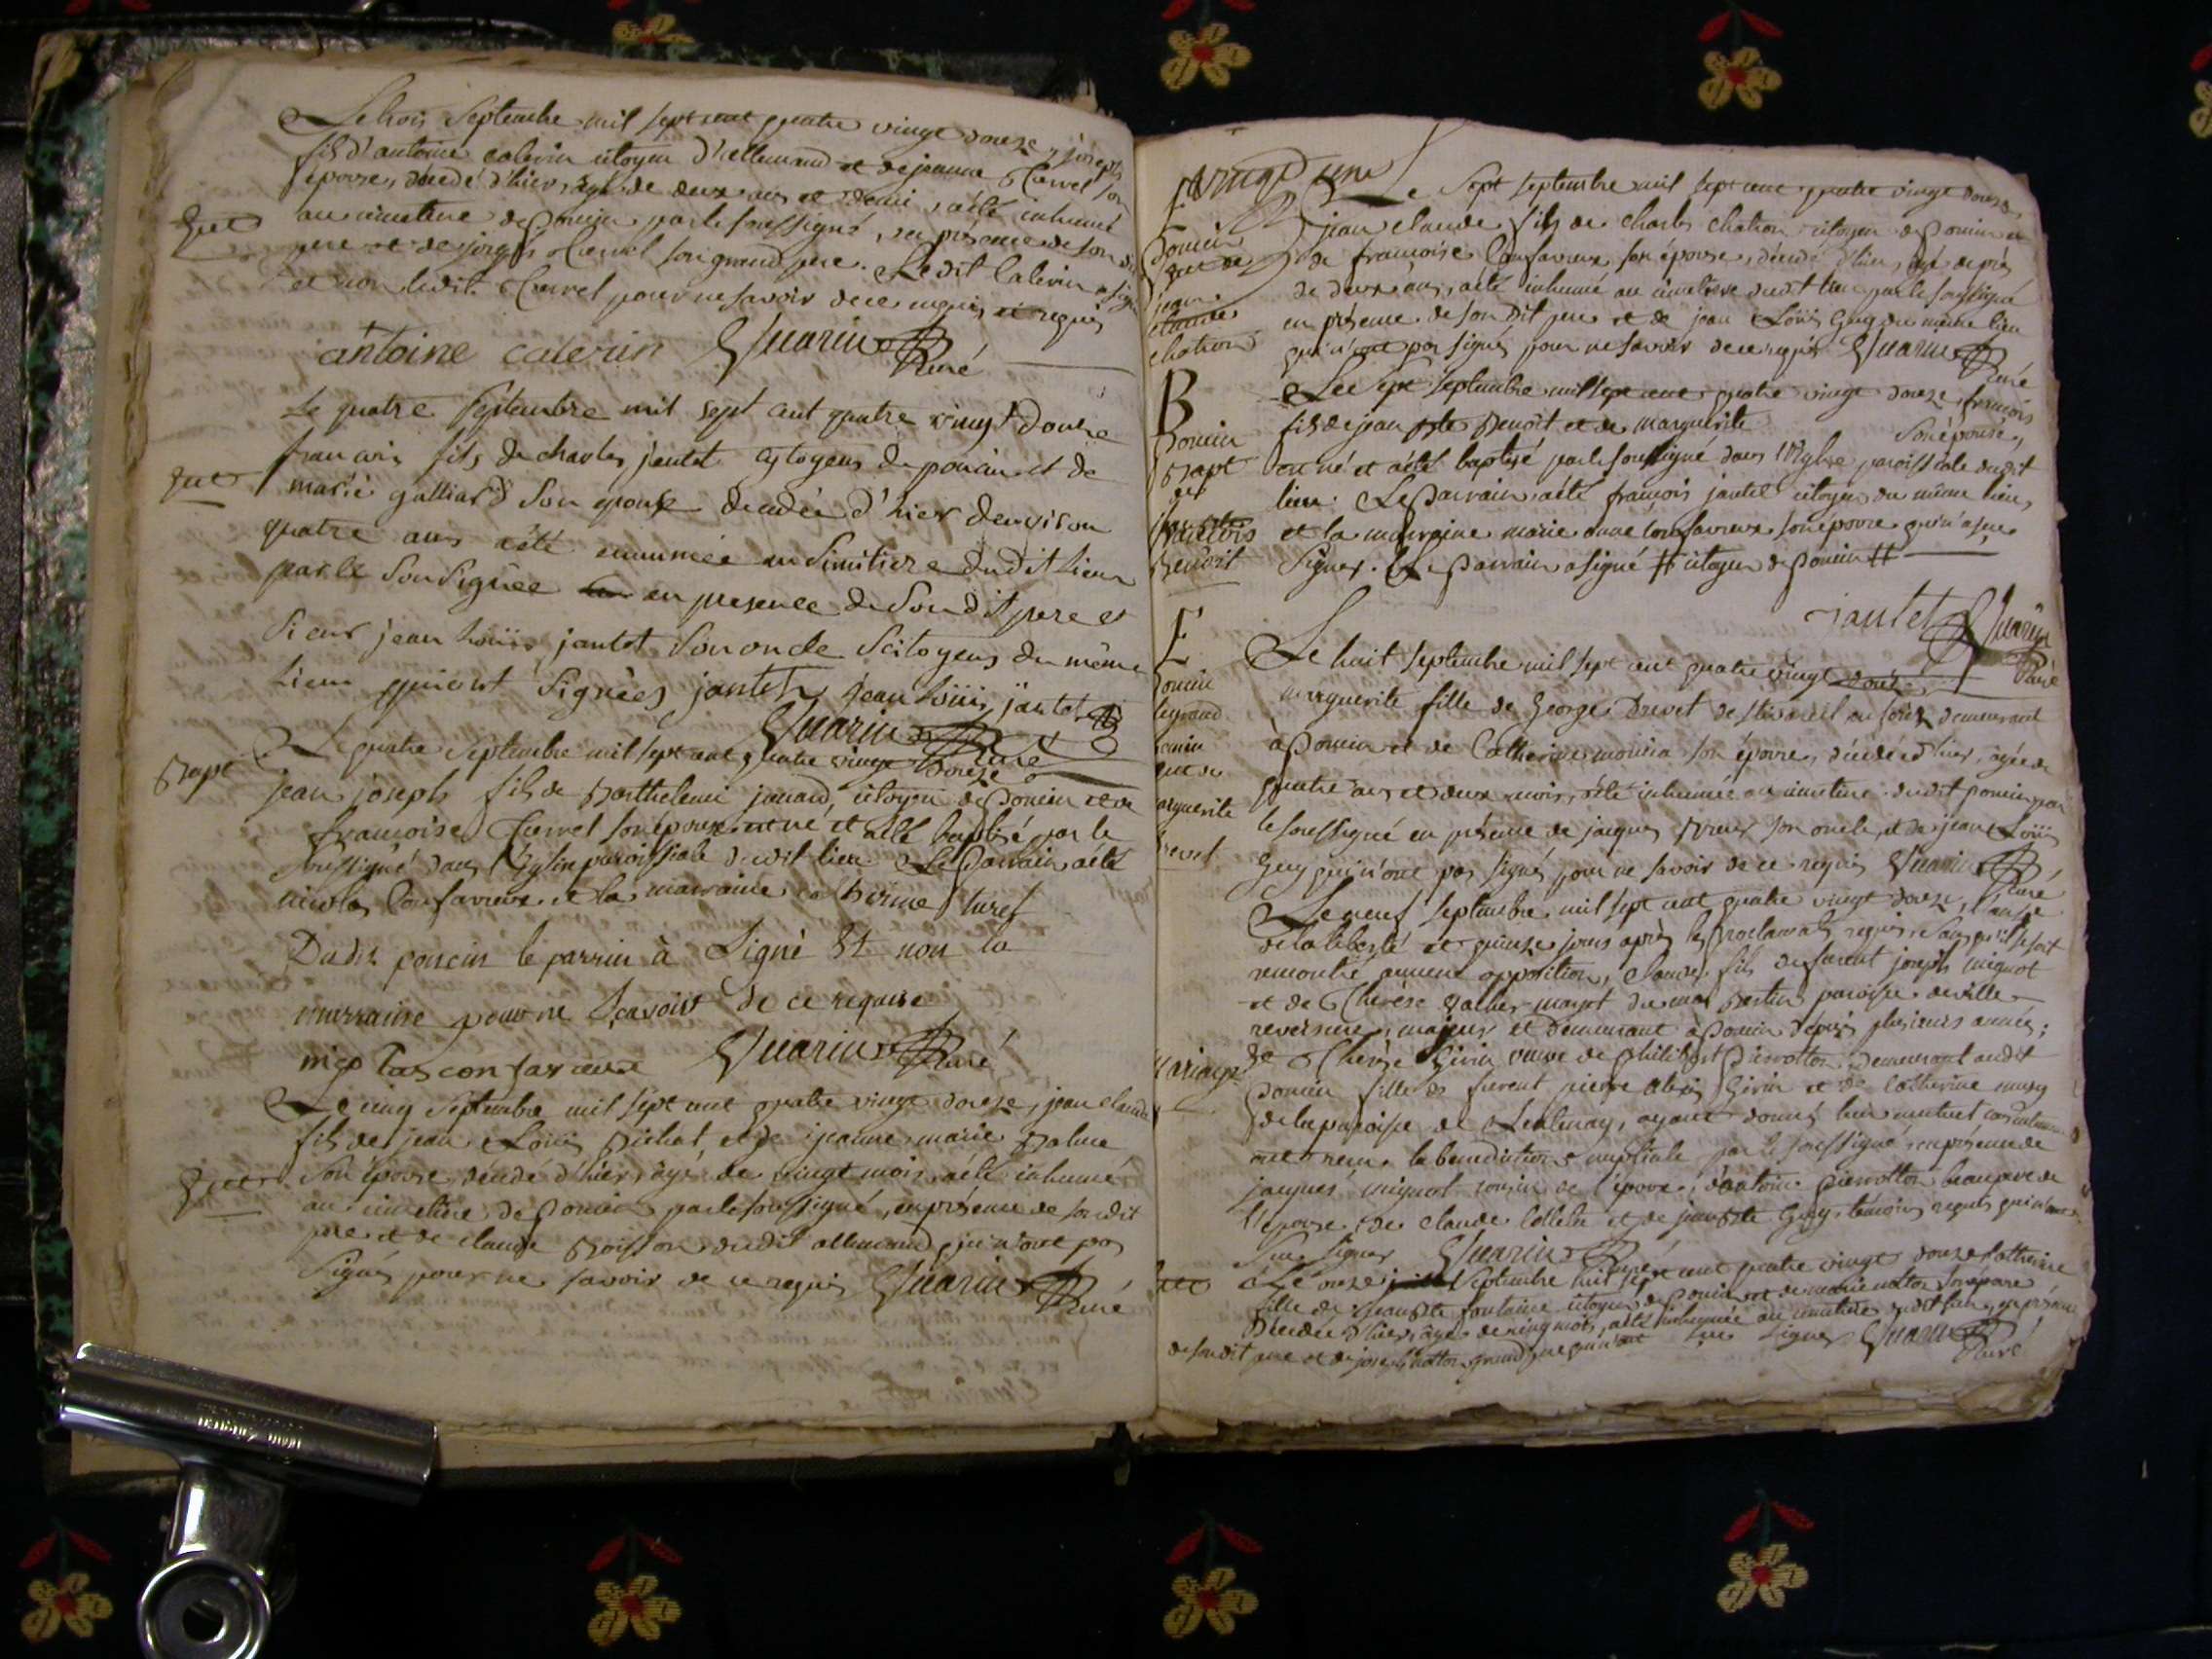 Le trois Septembre mil sept cent quatre vingt douze, joseph
fils d'antoine calerin citoyen d'allemand et de jeanne son
épouse, décédé d'hier, agé de deux ans et demi, a été inhumé
au cimetiere de Poncin par le soussigné, en présence de son dit
pere et de joseph son grand pere. Ledit Calerin a signé
et non ledit pour ne savoir de ce requis
antoine calerin Guarin Curé
Le quatre septembre mil sept cent quatre vingt douze
francois fils de charles jantet cytoyens de poncin et de
marie galliard son epouse decedée d'hier denviron
quatre ans a été innumée au Simitiere dudit Lieu
par le Sousignée en presence de Son dit pere et
Sieur jean Loüis jantet Son oncle Scitoyens du même
Lieu qui ont Signées jantet jean Loüis jantet
Guarin Curé
Bapt
Le quatre Septembre mil sept cent quatre vingt douze
jean joseph fils de Barthelemi janard, citoyen de Poncin et de
françoise son épouse est né et a été baptisé par le
soussigné dans l'Eglise paroissiale dudit lieu. Le Parrain a été
nicolas Confavreux et la marraine catherine
Dudit poncin le parrin à Signé Et non la
marraine pour ne Sçavoir de ce requise
nicolas confavreux Guarin Curé
Le cinq Septembre mil sept cent quatre vingt douze, jean claude
fils de jean Loüis Bichat, et de jeanne marie
son épouse, décédé d'hier, agé de vingt mois, a été inhumé
au cimetiere de Poncin par le soussigné, en présence de son dit
pere et de claude dudit allemand, qui n'ont pas
Signés pour ne savoir de ce requis Guarin Curé
vingt une
Le Sept septembre mil sept cent quatre vingt douze,
jean claude fils de charles chation citoyen de Poncin et
de françoise Confavreux son épouse, décédé d'hier, agé de près
de deux ans, a été inhumé au cimetiere dudit lieu par le soussigné
en présence de son dit pere et de jean Loüis Guy du même lieu
qui n'ont pas signés pour ne savoir de ce requis Guarin Curé
Poncin
jean
claude
chation
Le Sept Septembre mil sept cent quatre vingt douze, françois
fils de jean Bte Benoît et de marguerite son épouse,
est né et a été baptisé par le soussigné dans l'Eglise paroissiale dudit
lieu. Le Parrain a été françois jantet citoyen du même lieu,
et la marraine marie anne Confavreux son épouse qui n'a sçu
Signer. Le Parrain a signé # citoyen de Poncin #
B
Poncin
Bapt
de
françois
Benoît
jantet Guarin Curé
Le huit Septembre mil sept cent quatre vingt douze
marguerite fille de George Drevet de demeurant
à Poncin et de Catherine son épouse, décédée d'hier, agée de
quatre ans et deux mois, a été inhumée au cimetiere dudit poncin par
le soussigné en présence de jacques son oncle, et de jean Loüis
Guy qui n'ont pas signés pour ne savoir de ce requis Guarin Curé
Le neuf Septembre mil sept cent quatre vingt douze, l'an 4e
de la liberté et quinze jours après les Proclamats requis, sans qu'il se soit
rencontré aucune opposition, fils de furent joseph mignot
et de Thérèse paroisse de ville
reversure, majeur et demeurant à Poncin depuis plusieurs années;
Mariage
Et Thérèse Girin veuve de Philibert Pierrotton, demeurant audit
Poncin fille de furent pierre Girin et de Catherine
de la paroisse de ayant donné leur mutuel consentement
ont reçu la benediction nuptiale par le soussigné, en présence de
jacques mignot cousin de l'époux, d'antoine Pierrotton beaupere de
l'epouse, de claude et de jean Bte Guy, témoins requis qui n'ont
sçu signer Guarin Curé
Le onze Septembre mil sept cent quatre vingt douze Catherine
fille de jean Bte fontaine citoyen de Poncin et de marie son épouse
décédée d'hier, agée de cinq mois, a été inhumée au cimetiere dudit lieu, en présence
de son dit pere et de joseph grand pere qui n'ont sçu signer Guarin Curé